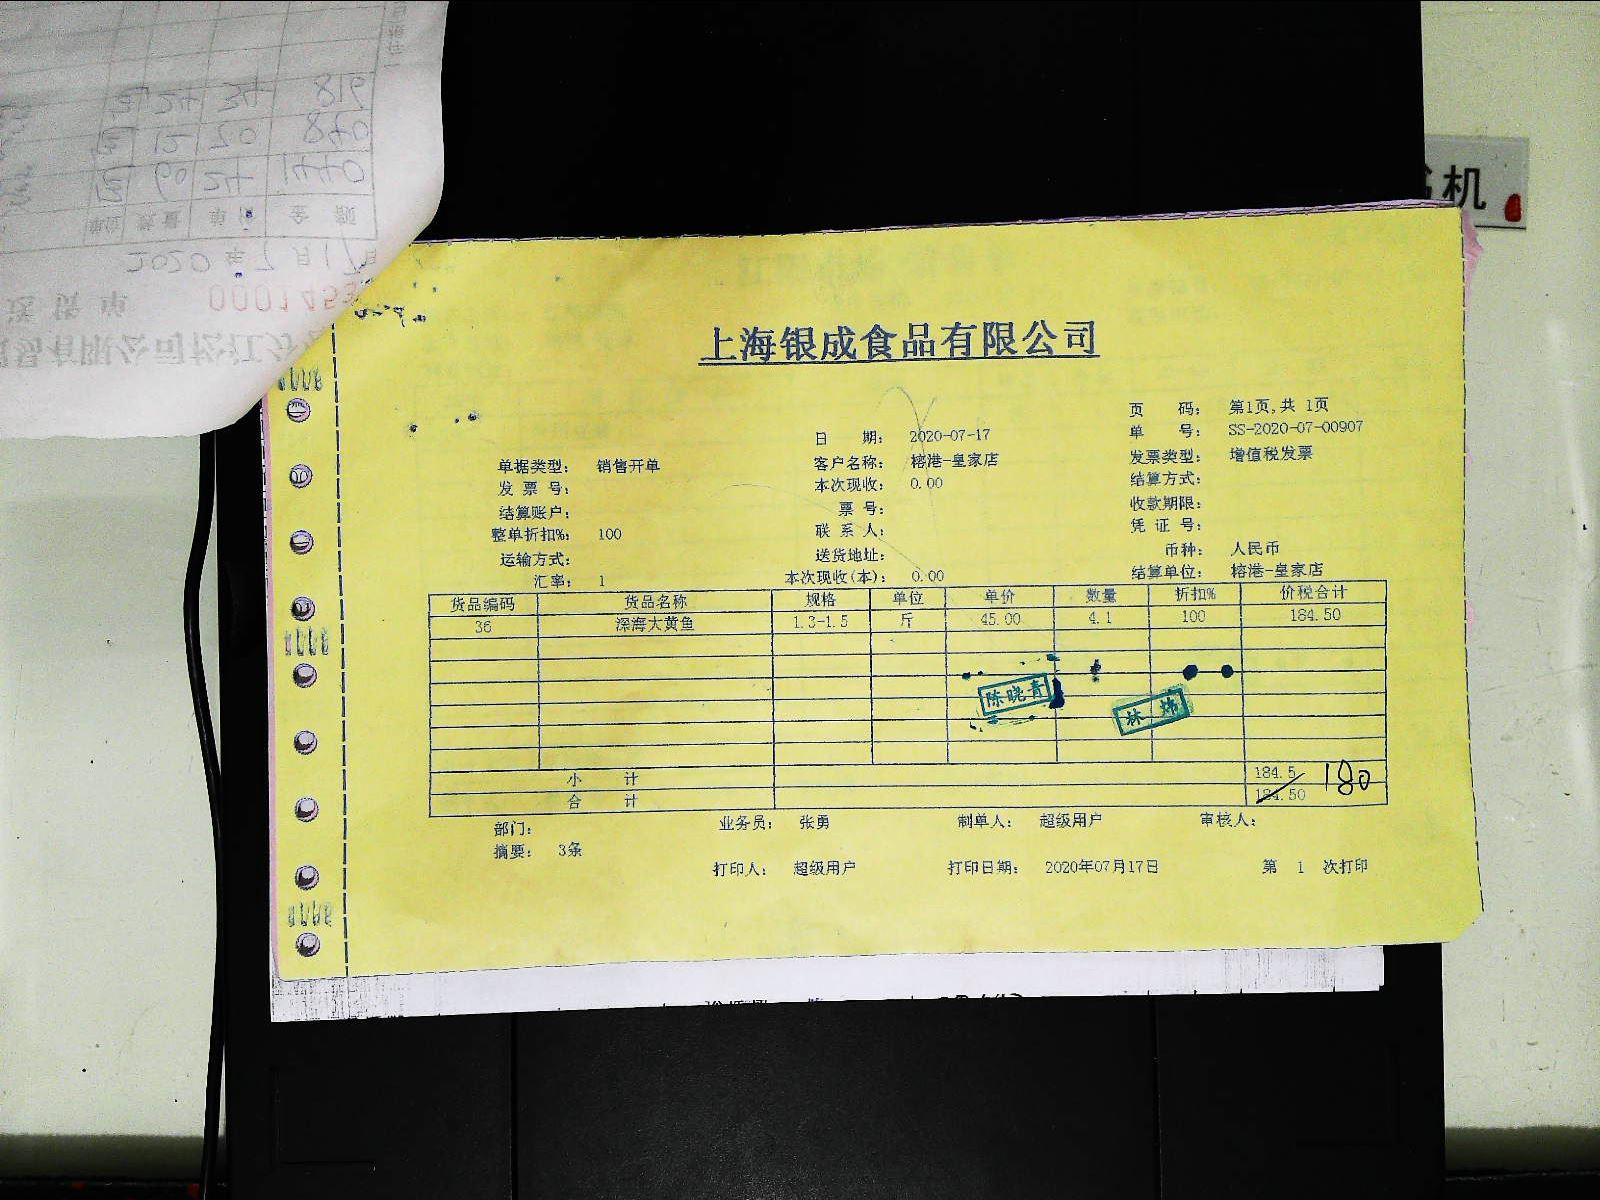 816
34
24
840
70
12
1440
24
60
金 额
单 价
数 量
单位
2020 年 7 月 17 日
送 货 单
书机
上海银成食品有限公司
页 码: 第1页,共 1页
日 期: 2020-07-17
单 号: SS-2020-07-00907
单据类型: 销售开单
客户名称: 榕港-皇家店
发票类型: 增值税发票
发 票 号:
本次现收: 0.00
结算方式:
结算账户:
票 号:
收款期限:
整单折扣%: 100
联 系 人:
凭 证 号:
运输方式:
送货地址:
币种: 人民币
汇率: 1
本次现收(本): 0.00
结算单位: 榕港-皇家店
货品编码 货品名称 规格 单位 单价 数量 折扣% 价税合计
36 深海大黄鱼 1.3-1.5 斤 45.00 4.1 100 184.50
陈晓青
林 炜
小 计 184.5 180
合 计 184.50
部门: 业务员: 张勇 制单人: 超级用户 审核人:
摘要: 3条
打印人: 超级用户 打印日期: 2020年07月17日 第 1 次打印